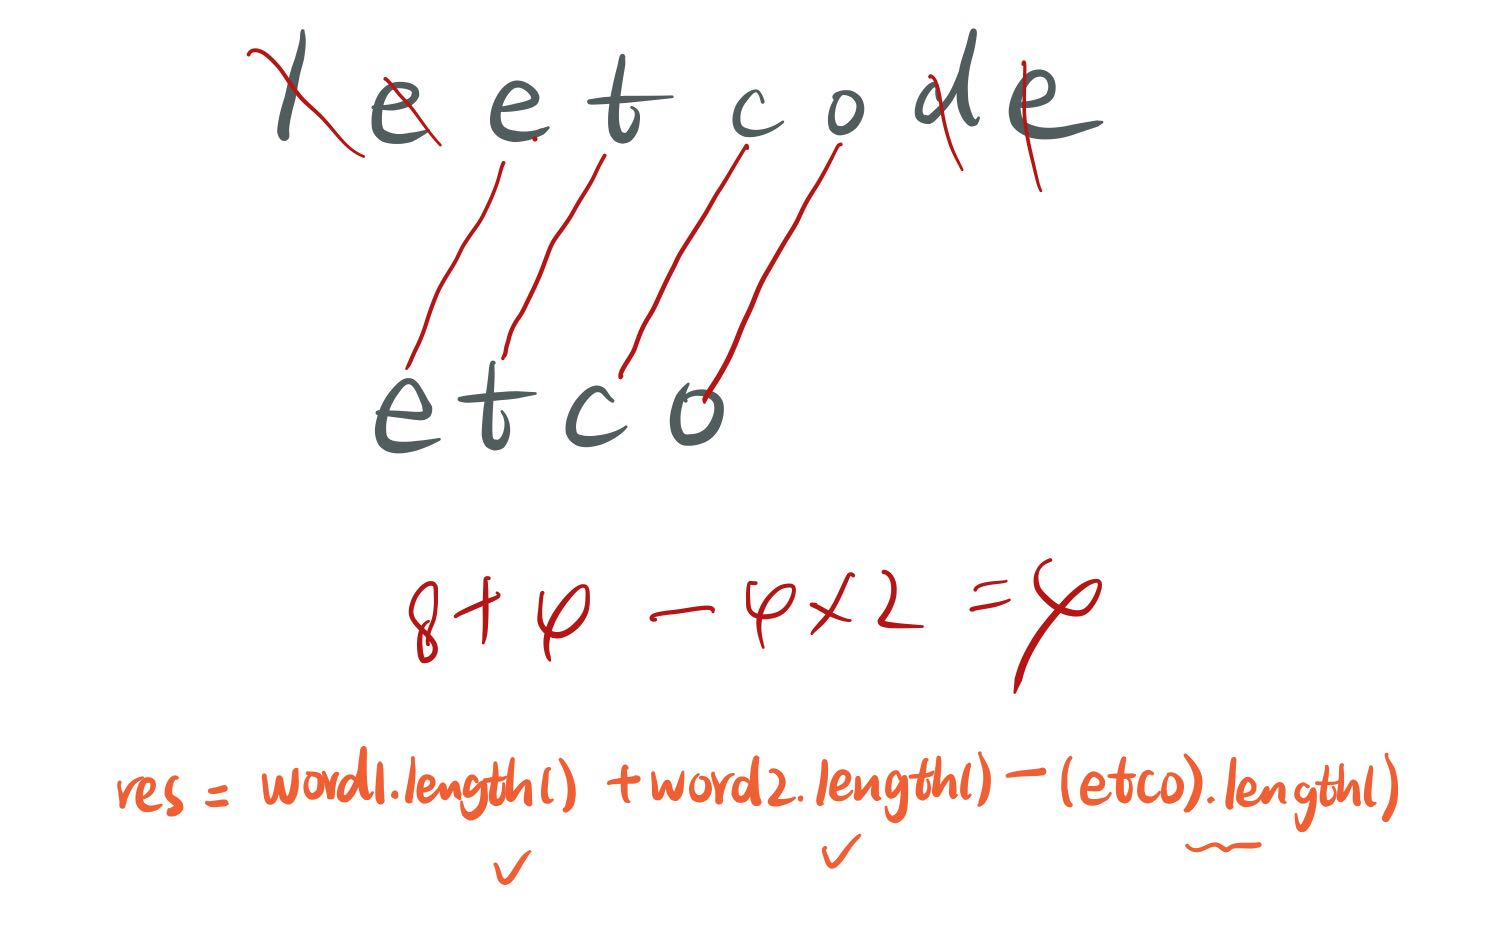 leetcode
etco
8+4-4×2=4
res = word1.length() + word2.length() - (etco).length()